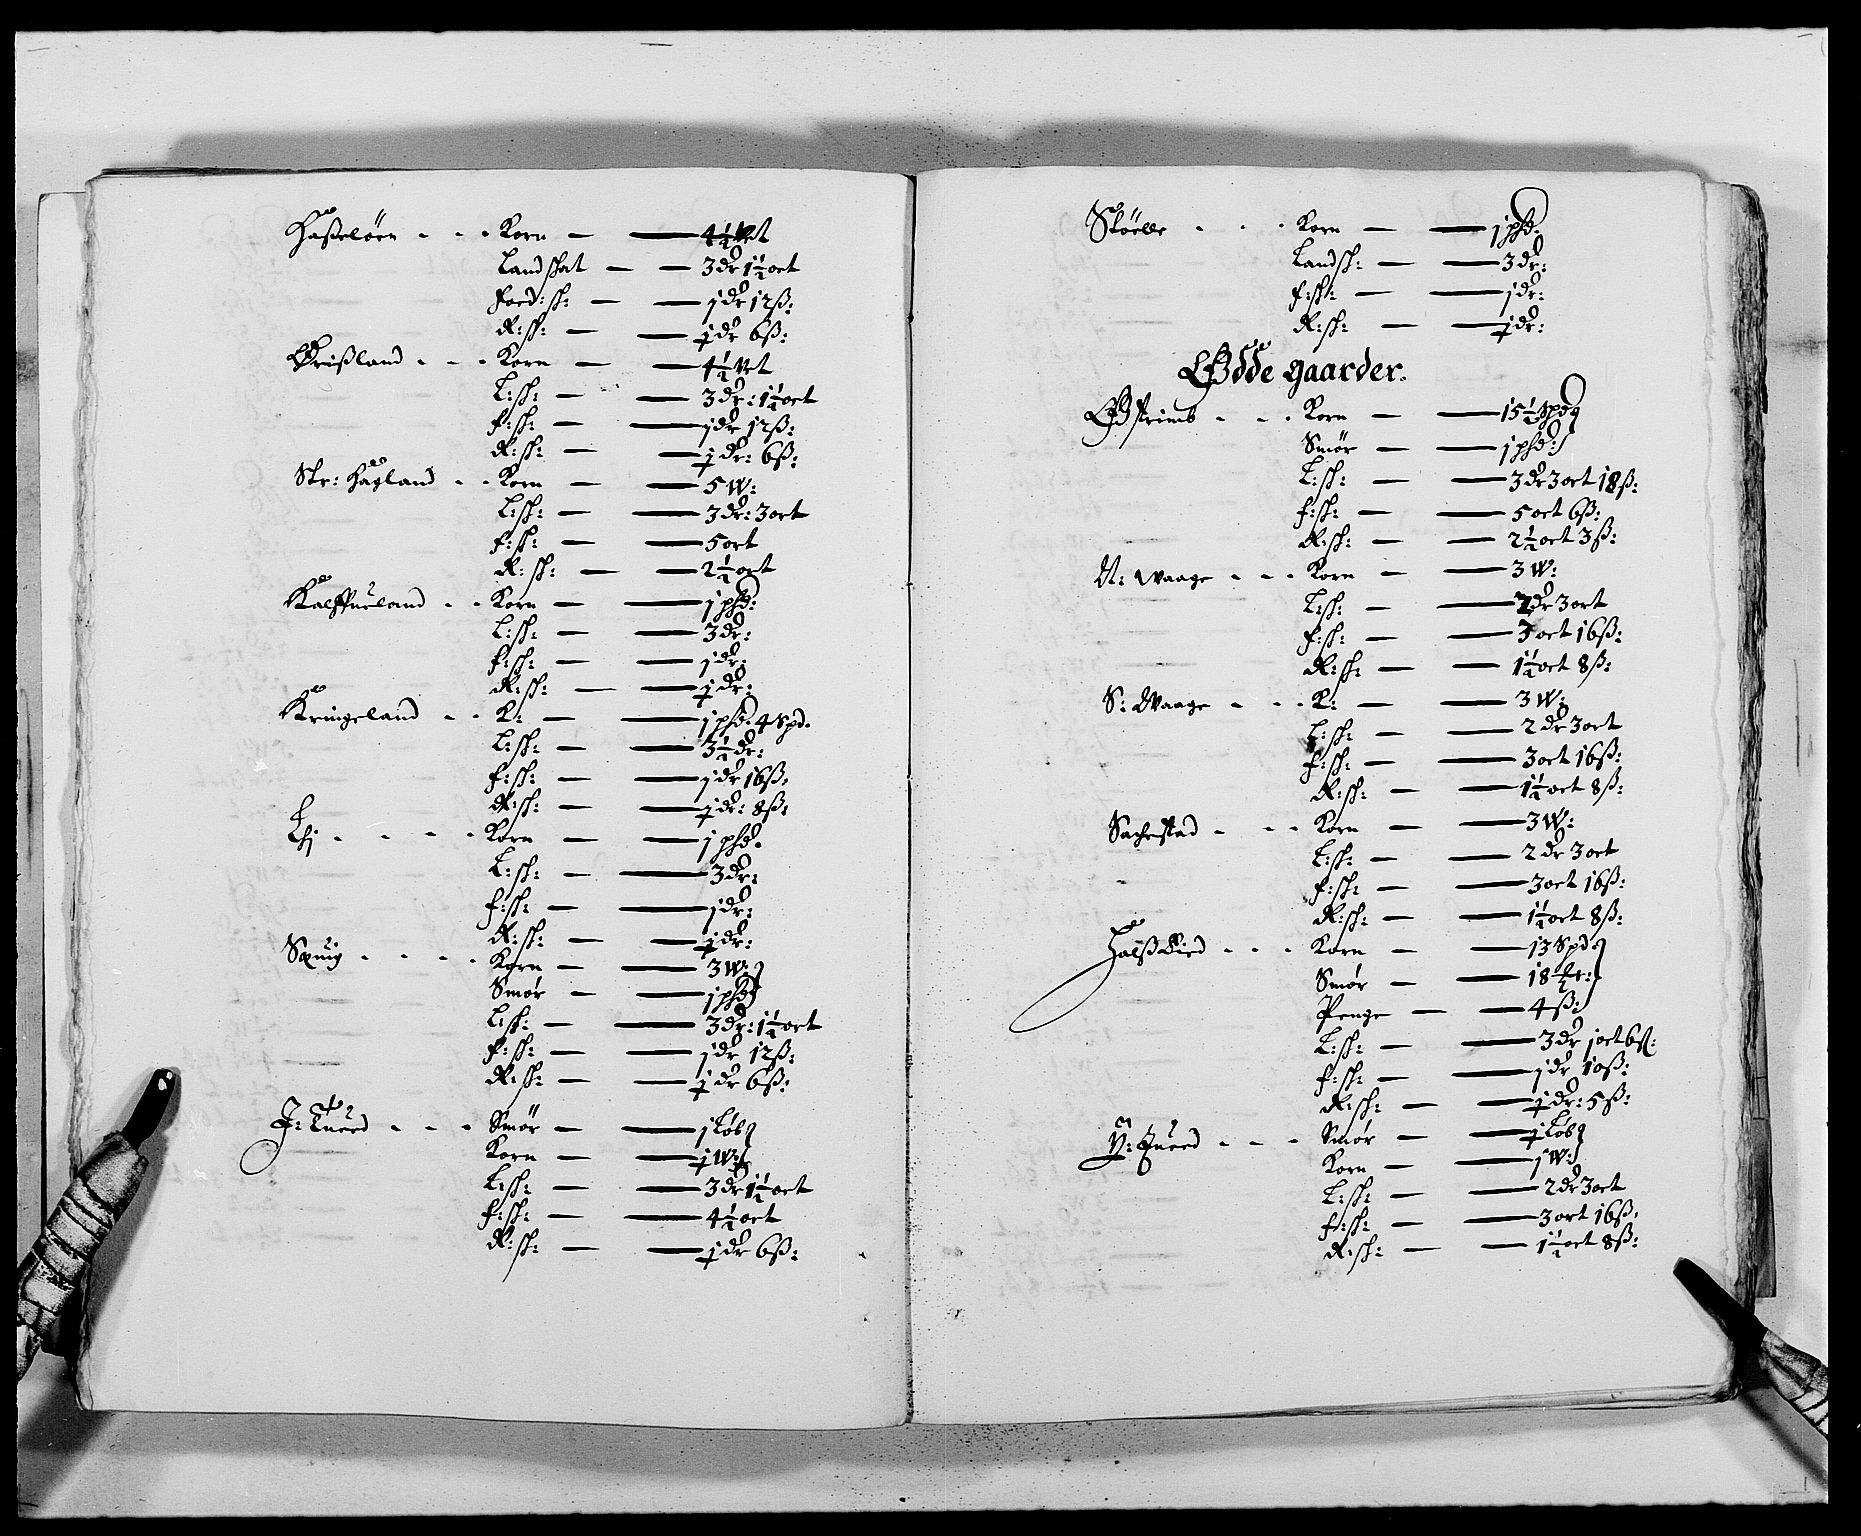 Haßeløen - - - Korn — — 4½ Vet
Landskat — — 3 dr 1½ ort
Foed: sk: — — 1 dr 12 ß:
R: sk: — — ½ dr 6 ß:
Grißland - - - Korn — — 4½ Vet
L: sk: — — 3 dr: 1½ ort
F: sk: — — 1 dr 12 ß:
R: sk: — — ½ dr: 6 ß:
Str: Hagland - - Korn — — 5 W:
L: sk: — — 3 dr: 3 ort
F: sk: — — 5 ort
R: sk: — — 2½ ort
Korn — — 1 phd:
L: sk: — — 3 dr:
F: sk: — — 1 dr:
R: sk: — — ½ dr:
Kringeland - - K: — — 1 phd. 4 Spd.
L: sk: — — 3½ dr:
F: sk: — — 1 dr 16 ß.
R: sk: — — ½ dr: 8 ß:
Korn — — 1 phd.
L: sk: — — 3 dr:
F: sk: — — 1 dr:
R: sk: — — ½ dr:
Korn — — 3 W:
Smør — — 1 phd
L: sk: — — 3 dr: 1½ ort
F: sk: — — 1 dr 12 ß:
R: sk: — — ½ dr 6 ß:
Smør — — 1 Løb
Korn — — ½ W:
L: sk: — — 3 dr 1½ ort
F: sk: — — 4½ ort
R: sk: — — ½ dr 6 ß:
Støelle - - - Korn — — 1 phd.
Landsk: — — 3 dr:
F: sk: — — 1 dr:
R: sk: — — ½ dr:
Ødde gaarder.
Korn — — 15½ Spd
Smør — — 1 phd:
L: sk: — — 3 dr 3 ort 18 ß:
F: sk: — — 5 ort 6 ß:
R: sk: — — 2½ ort 3 ß:
N: Waage - - - Korn — — 3 W:
L: sk: — — 2 dr 3 ort
F: sk: — — 3 ort 16 ß:
R: sk: — — 1½ ort 8 ß:
S: Waage - - - K: — — 3 W:
L: sk: — — 2 dr 3 ort
F: sk: — — 3 ort 16 ß:
R: sk: — — 1½ ort 8 ß:
Sachestad - - - Korn — — 3 W:
L: sk: — — 2 dr 3 ort
F: sk: — — 3 ort 16 ß:
R: sk: — — 1½ ort 8 ß:
Korn — — 13 Spd
Smør — — 18
Penge — — 4 ß:
L: sk: — — 3 dr 1 ort 6 ß:
F: sk: — — 1 dr 10 ß:
R: sk: — — ½ dr: 5 ß:
Smør — — ½ Løb
Korn — — 1 W:
L: sk: — — 2 dr 3 ort
F: sk: — — 3 ort 16 ß:
R: sk: — — 1½ ort 8 ß: